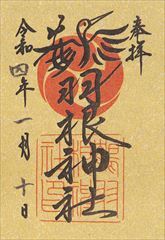 奉拝
鶴羽根神社
令和四年一月十日